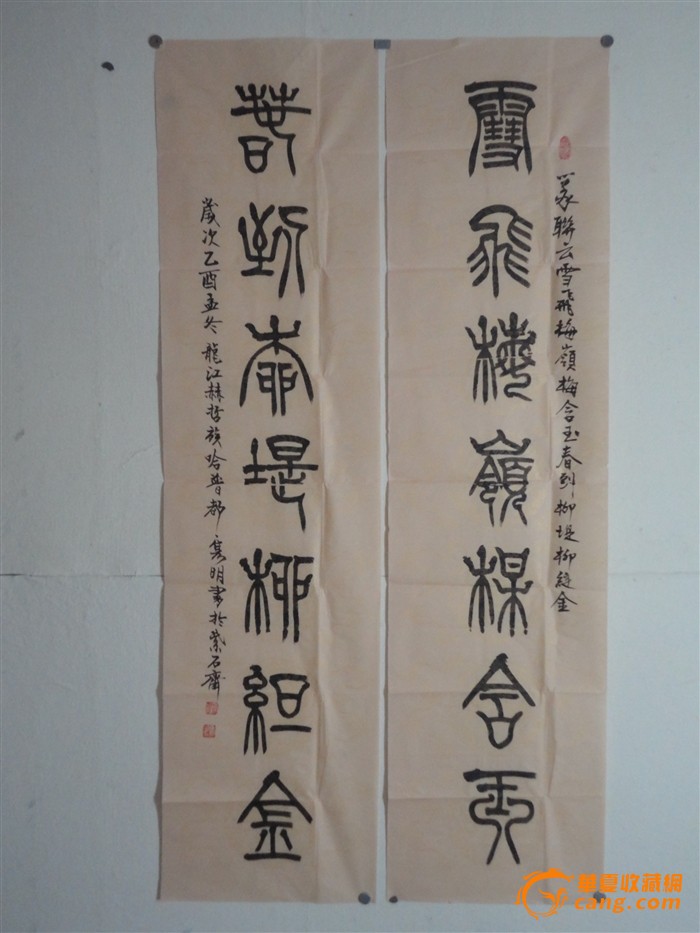 篆聯云雪飛梅嶺梅含玉春到柳堤柳綻金
雪飛梅嶺梅含玉
春到柳堤柳綻金
歲次乙酉孟冬龍江赫哲族哈普都隽明書於紫石齋
華夏收藏網
cang.com